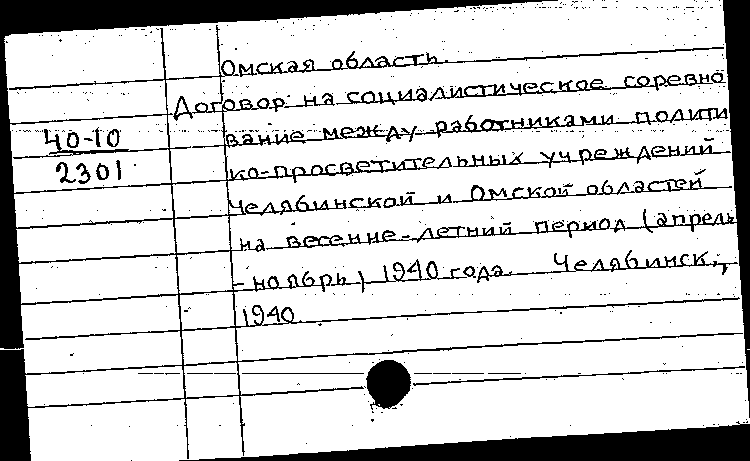 Омская область.
Договор на социалистическое соревно
40-10
вание между работниками полити
2301
ко-просветительных учреждений
Челябинской и Омской областей
на весенне-летний период (апрель
-ноябрь) 1940 года. Челябинск.,
1940.